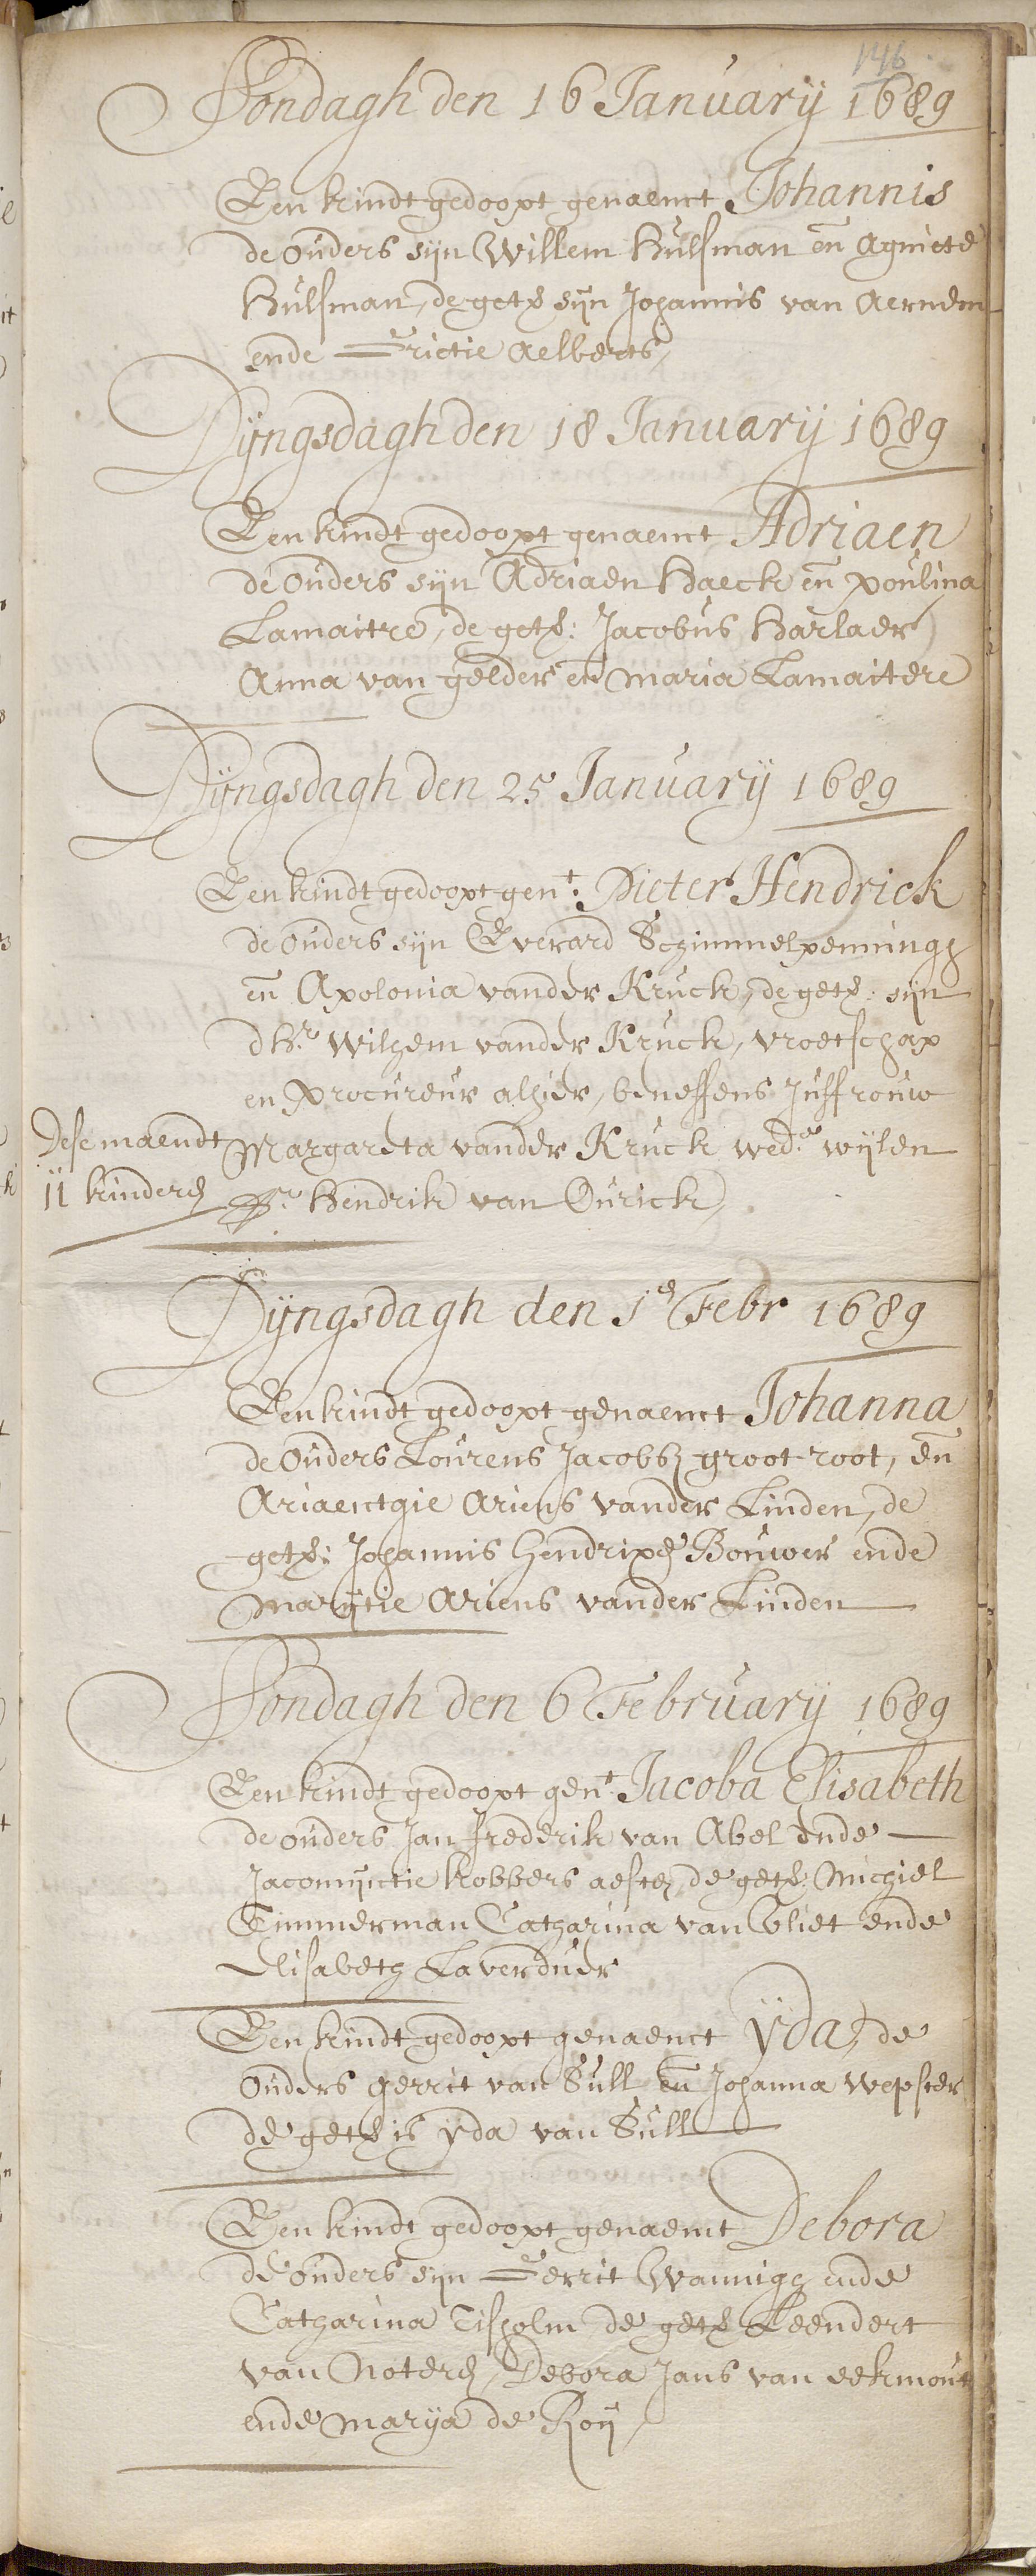 146
Sondagh den 16 January 1689
Een kindt gedoopt genaemt Johannis
de ouders sijn Willem Hulsman en Agniete
Hulsman, de get: sijn Johannis van Aernem
ende Grietie Aelberts,
Dijngsdagh den 18 January 1689
Een kindt gedoopt genaemt Adriaen
de ouders sijn Adriaen Haeck en poulina
Lamaitre, de get: Jacobus Harlaer
Anna van gelder en Maria Lamaitere
Dijngsdagh den 25 January 1689
Een kindt gedoopt gent: Pieter Hendrick
de ouders sijn Everard Schimmelpenningh
en Apolonia vander Kruck, de get: sijn
dHr. Wilhem vander Kruck, vroetschap
en procureur alhier, beneffens Juffrouw
Margareta vander Kruck wede. wijlen
Hendrik van Ourick,
Dese maendt
11 kinderen
Dijngsdagh den 1e Febr 1689
Een kindt gedoopt genaemt Johanna
de Ouders Lourens Jacobsz groot root, en
Ariaentgie Ariens vander Linden, de
get: Johannis Hendrixen Bouwer ende
Marijtie Ariens vander Linden
Sondagh den 6 February 1689
Een kindt gedoopt gent Jacoba Elisabeth
de ouders Jan frederik van Abel ende
Jacomijntie Kobbers de get: Michiel
Timmerman Catharina van Vliet ende
Elisabeth Laverduer
Een kindt gedoopt genaemt Yda, de
Ouders gerrit van Sull en Johanna Wepster
de get is yda van Sull
Een kindt gedoopt genaemt Debora
de ouders sijn Gerrit Wannigh ende
Catharina Tisholm de get Leendert
van Noteren, Debora Jans van eekmout
ende Marya de Roij,